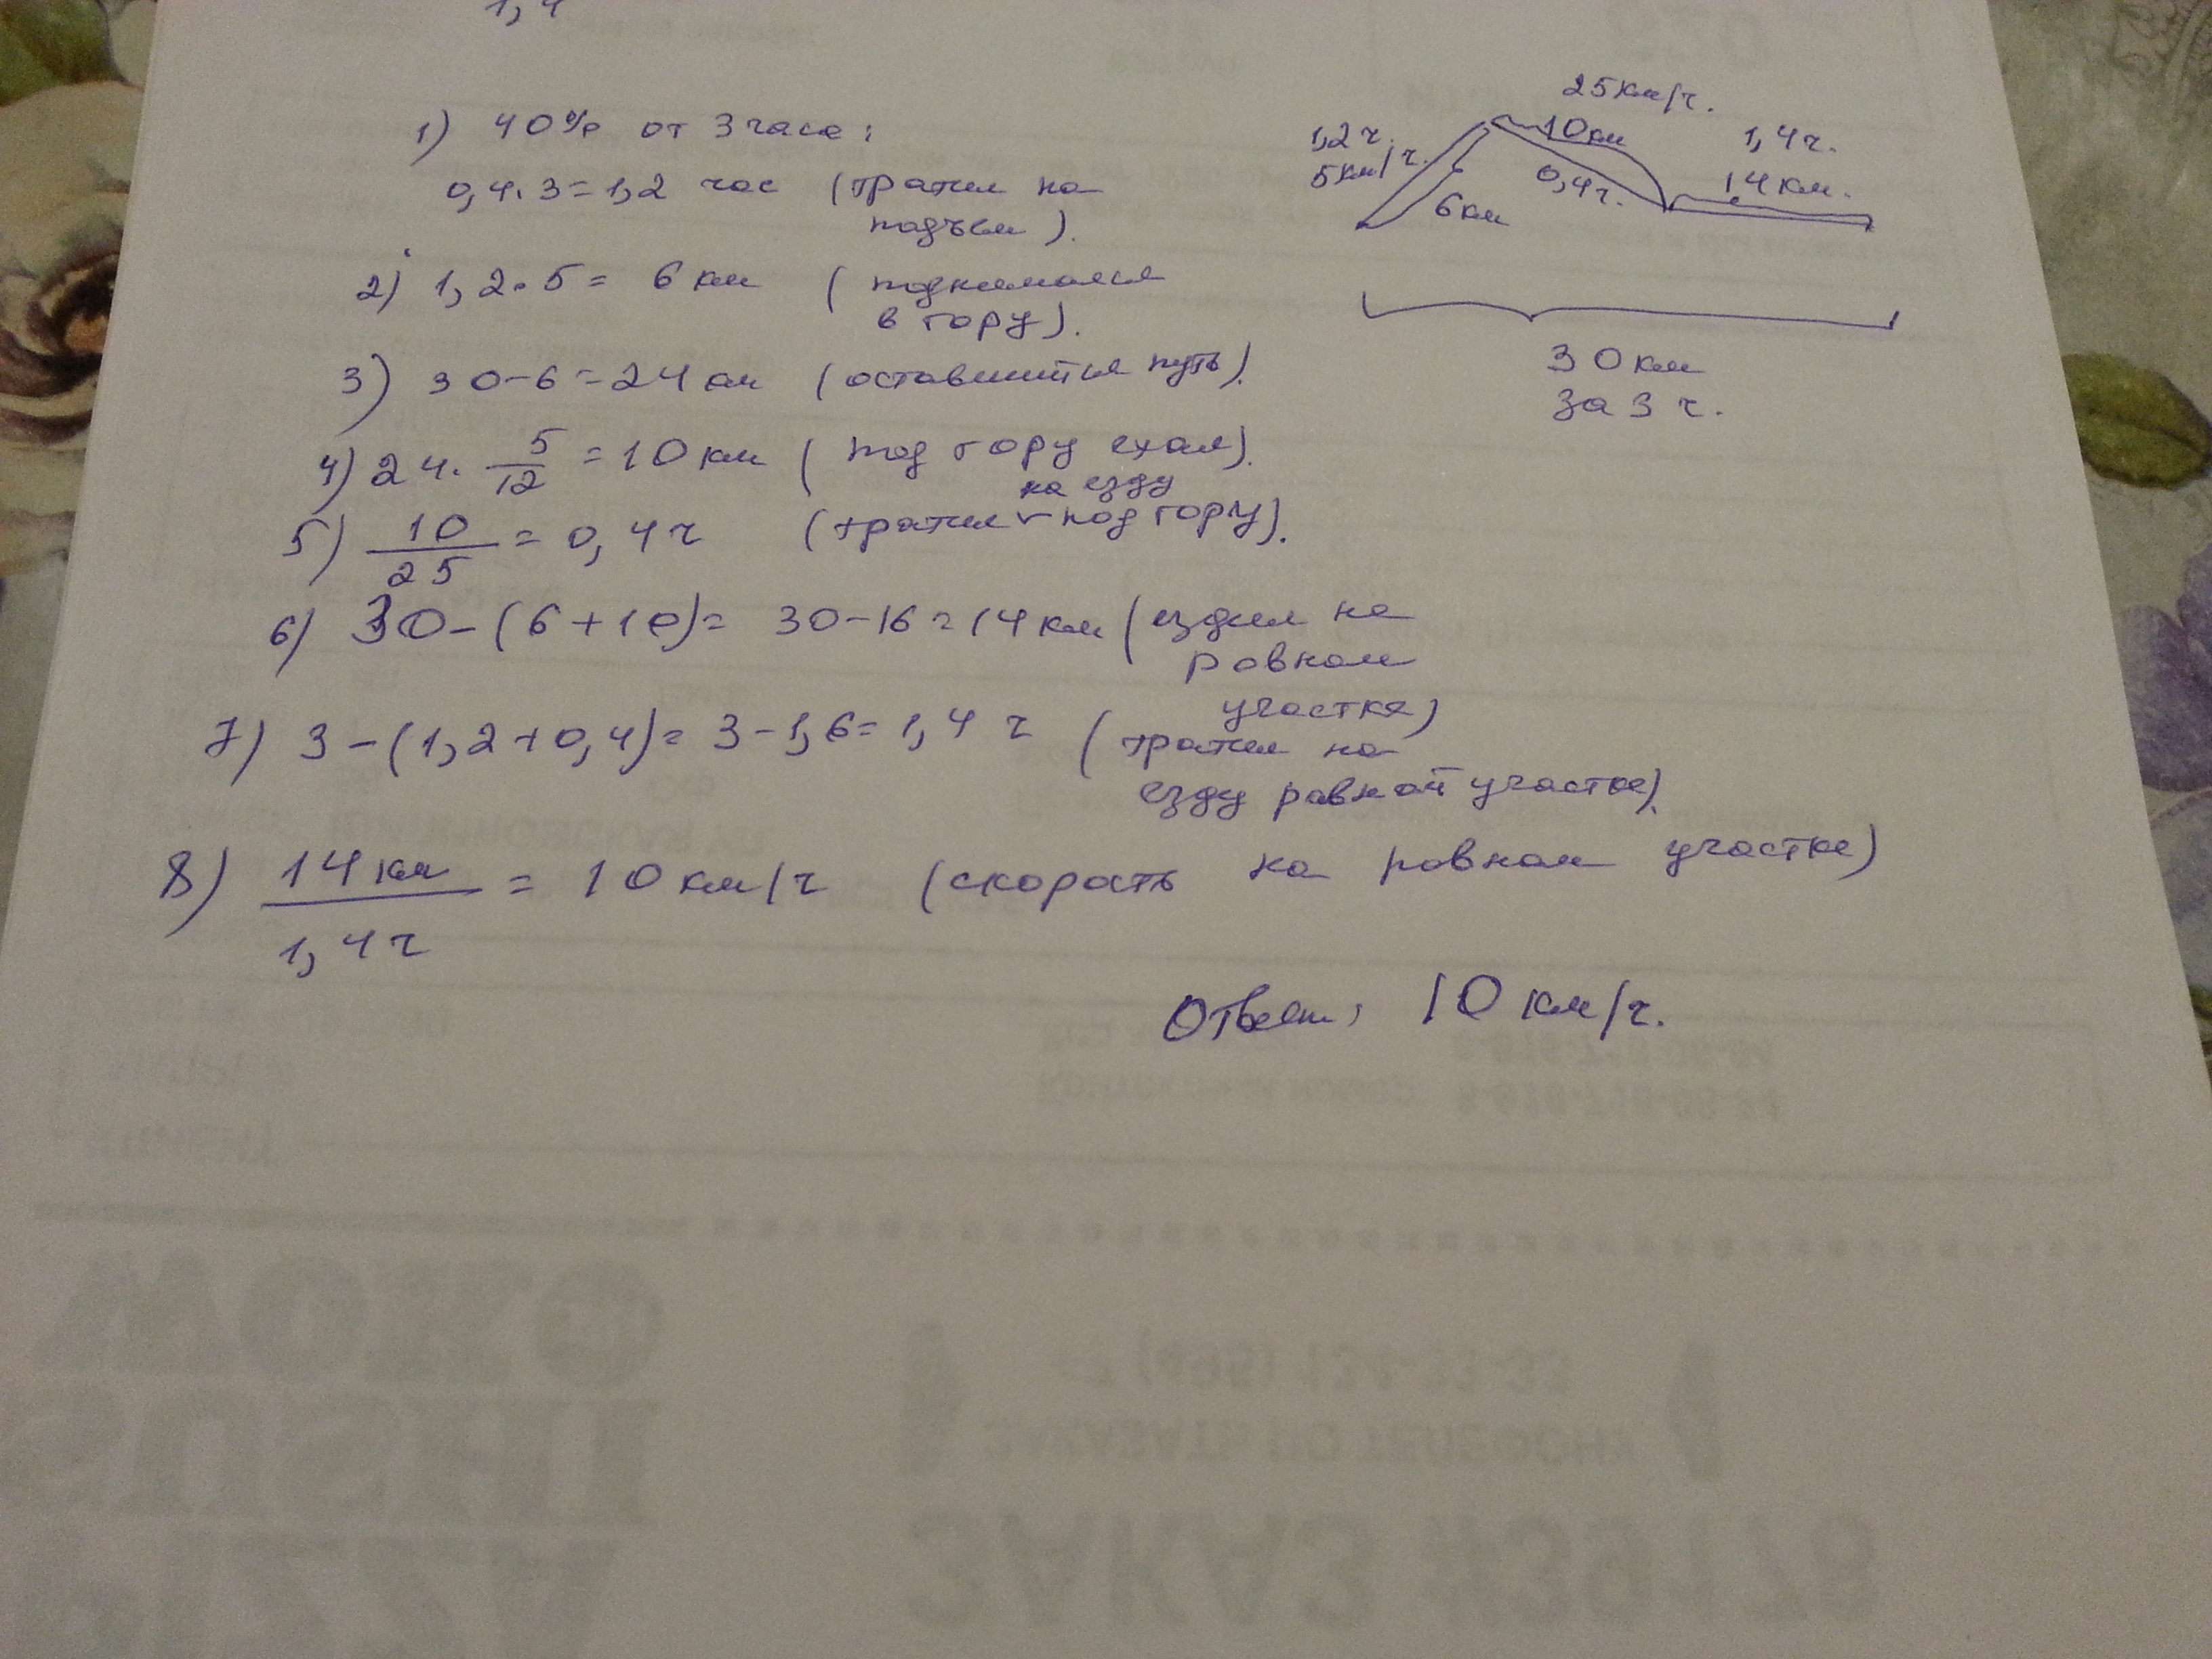 1,4
1) 40% от 3 часа:
0,4·3=1,2 час (тратил на
подъём).
2) 1,2·5= 6 км (поднимался
в гору).
3) 30-6=24 км (оставшийся путь).
4) 24· 5/12 =10 км ( под гору ехал).
на езду
5) 10/25 = 0,4ч (тратил под гору).
6) 30-(6+10)= 30-16=14 км (ездил на
ровном
участке)
7) 3-(1,2+0,4)= 3-1,6=1,4 ч (тратил на
езду равной участке).
8) 14 км/1,4ч = 10 км/ч (скорость на ровном участке)
Ответ: 10 км/ч.
25км/ч.
1,2ч. 10км 1,4ч.
5км/ч. 0,4ч. 14км.
6км
30км
за 3 ч.